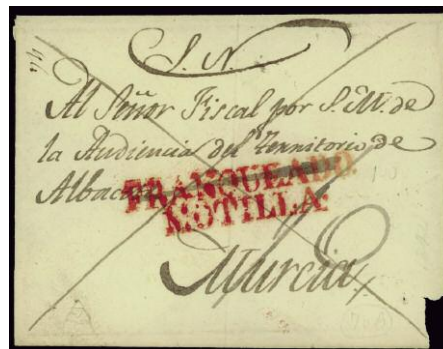 S. N.
Al Señor Fiscal por S. M. de
la Audiencia del Territorio de
Albacete
FRANQUEADO.
MOTILLA.
Murcia